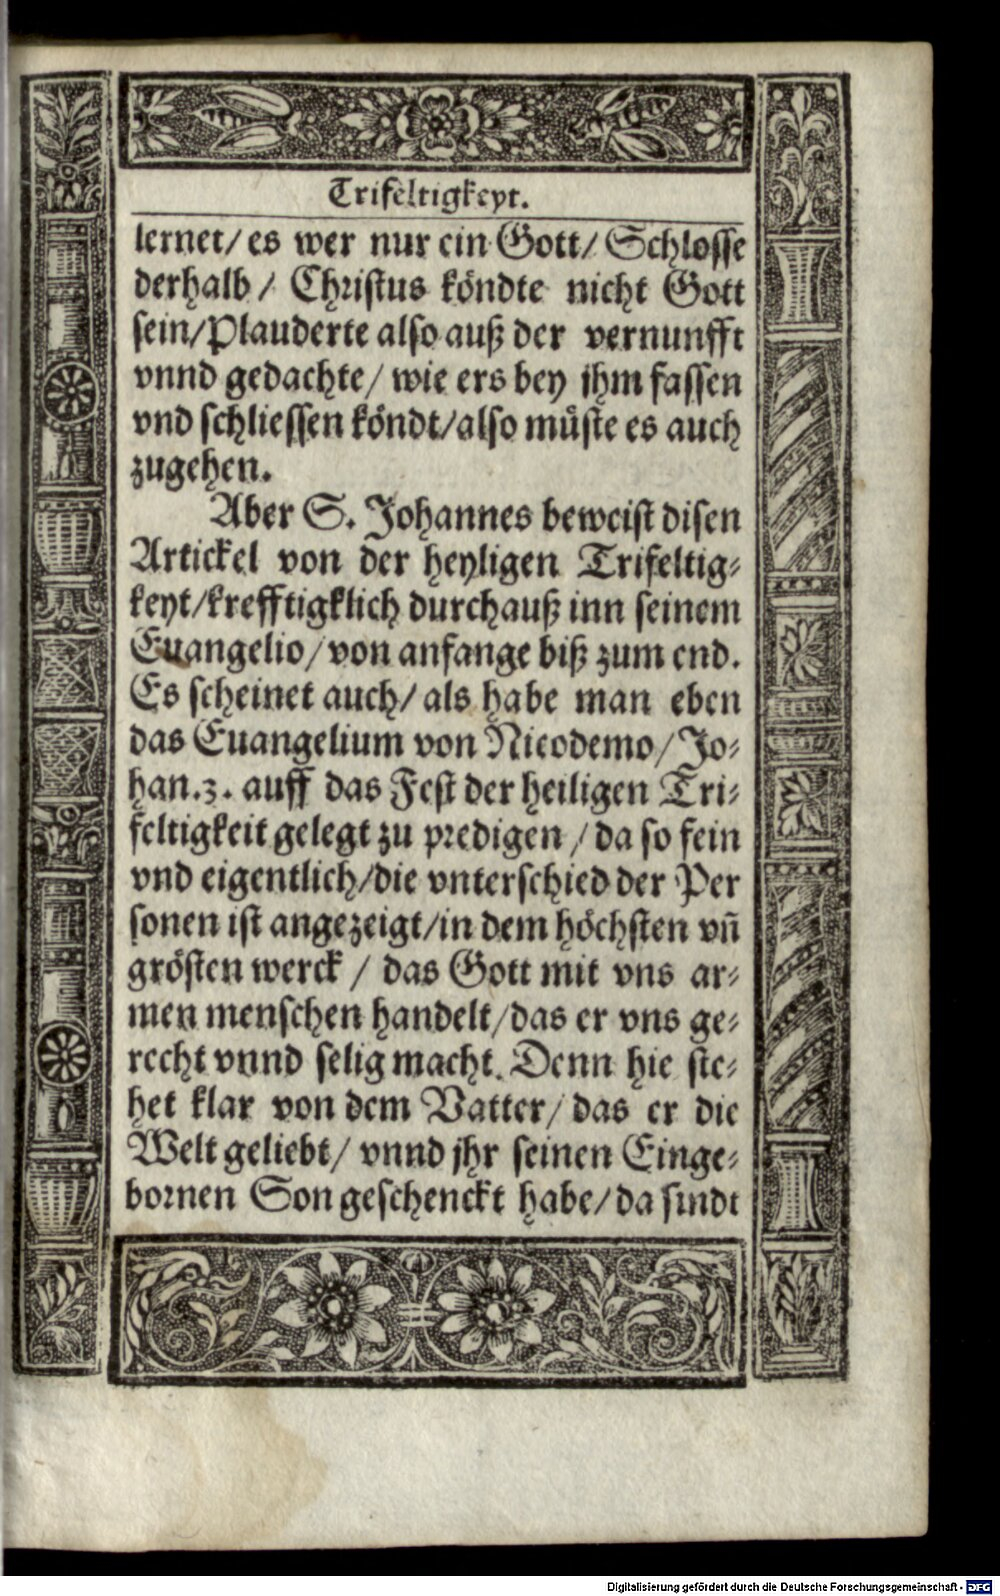 Trifeltigkeyt.
lernet/ es wer nur ein Gott/ Schlosse
derhalb/ Christus köndte nicht Gott
sein/Plauderte also auß der vernunfft
vnnd gedachte/ wie ers bey jhm fassen
vnd schliessen köndt/also müste es auch
zugehen.
Aber S. Johannes beweist disen
Artickel von der heyligen Trifeltig-
keyt/krefftigklich durchauß inn seinem
Euangelio/von anfange biß zum end.
Es scheinet auch/ als habe man eben
das Euangelium von Nicodemo/ Jo-
han.3. auff das Fest der heiligen Tri-
feltigkeit gelegt zu predigen / da so fein
vnd eigentlich/die vnterschied der Per
sonen ist angezeigt/in dem höchsten vñ
grösten werck / das Gott mit vns ar-
men menschen handelt/das er vns ge-
recht vnnd selig macht. Denn hie ste-
het klar von dem Vatter/ das er die
Welt geliebt/ vnnd jhr seinen Einge-
bornen Son geschenckt habe/ da sindt
Digitalisierung gefördert durch die Deutsche Forschungsgemeinschaft - DFG